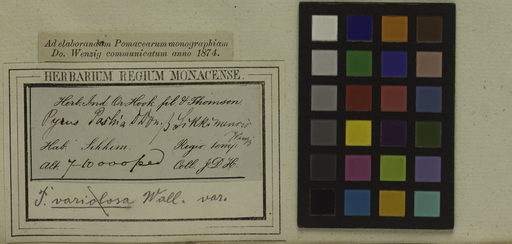 Ad elaborandam Pomacearum monographiam
Do. Wenzig communicatum anno 1874.
HERBARIUM REGIUM MONACENSE.
Herb. Ind. Or. Hook. fil. & Thomson
Pyrus Pashia D.Dn. β sikkimensis
Wenzig
Hab. Sikkim. Regio temp.
Alt. 7-10 000 ped Coll. J.D.H.
P. variolosa Wall. var.